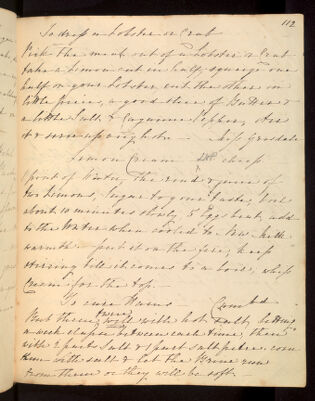 112
To dress a Lobster or Crab
Pick the meat out of a Lobster or Crab
take a Lemon cut in half, squeeze one
half on your Lobster, cut the other in
little pieces, a good slice of Butter &
a little Salt & Cayenne Pepper, stew
it & serve up very hot - Miss
Lemon Cream cheap
1 pint of Water, the rind & juice of
two Lemons, Sugar to your taste, boil
about 10 minutes slowly, 5 Eggs beat, add
to the Water when cooled to New Milk
warmth - put it on the fire, & keep
stirring till it comes to a boil, whip
Cream for the top -
To cure Hams
Rub them well with hot Salt, letting
a week elapse between each time, then
with 2 parts Salt & 1 part Saltpetre. cover
them with Salt & let the Brine run
from them or they will be soft -